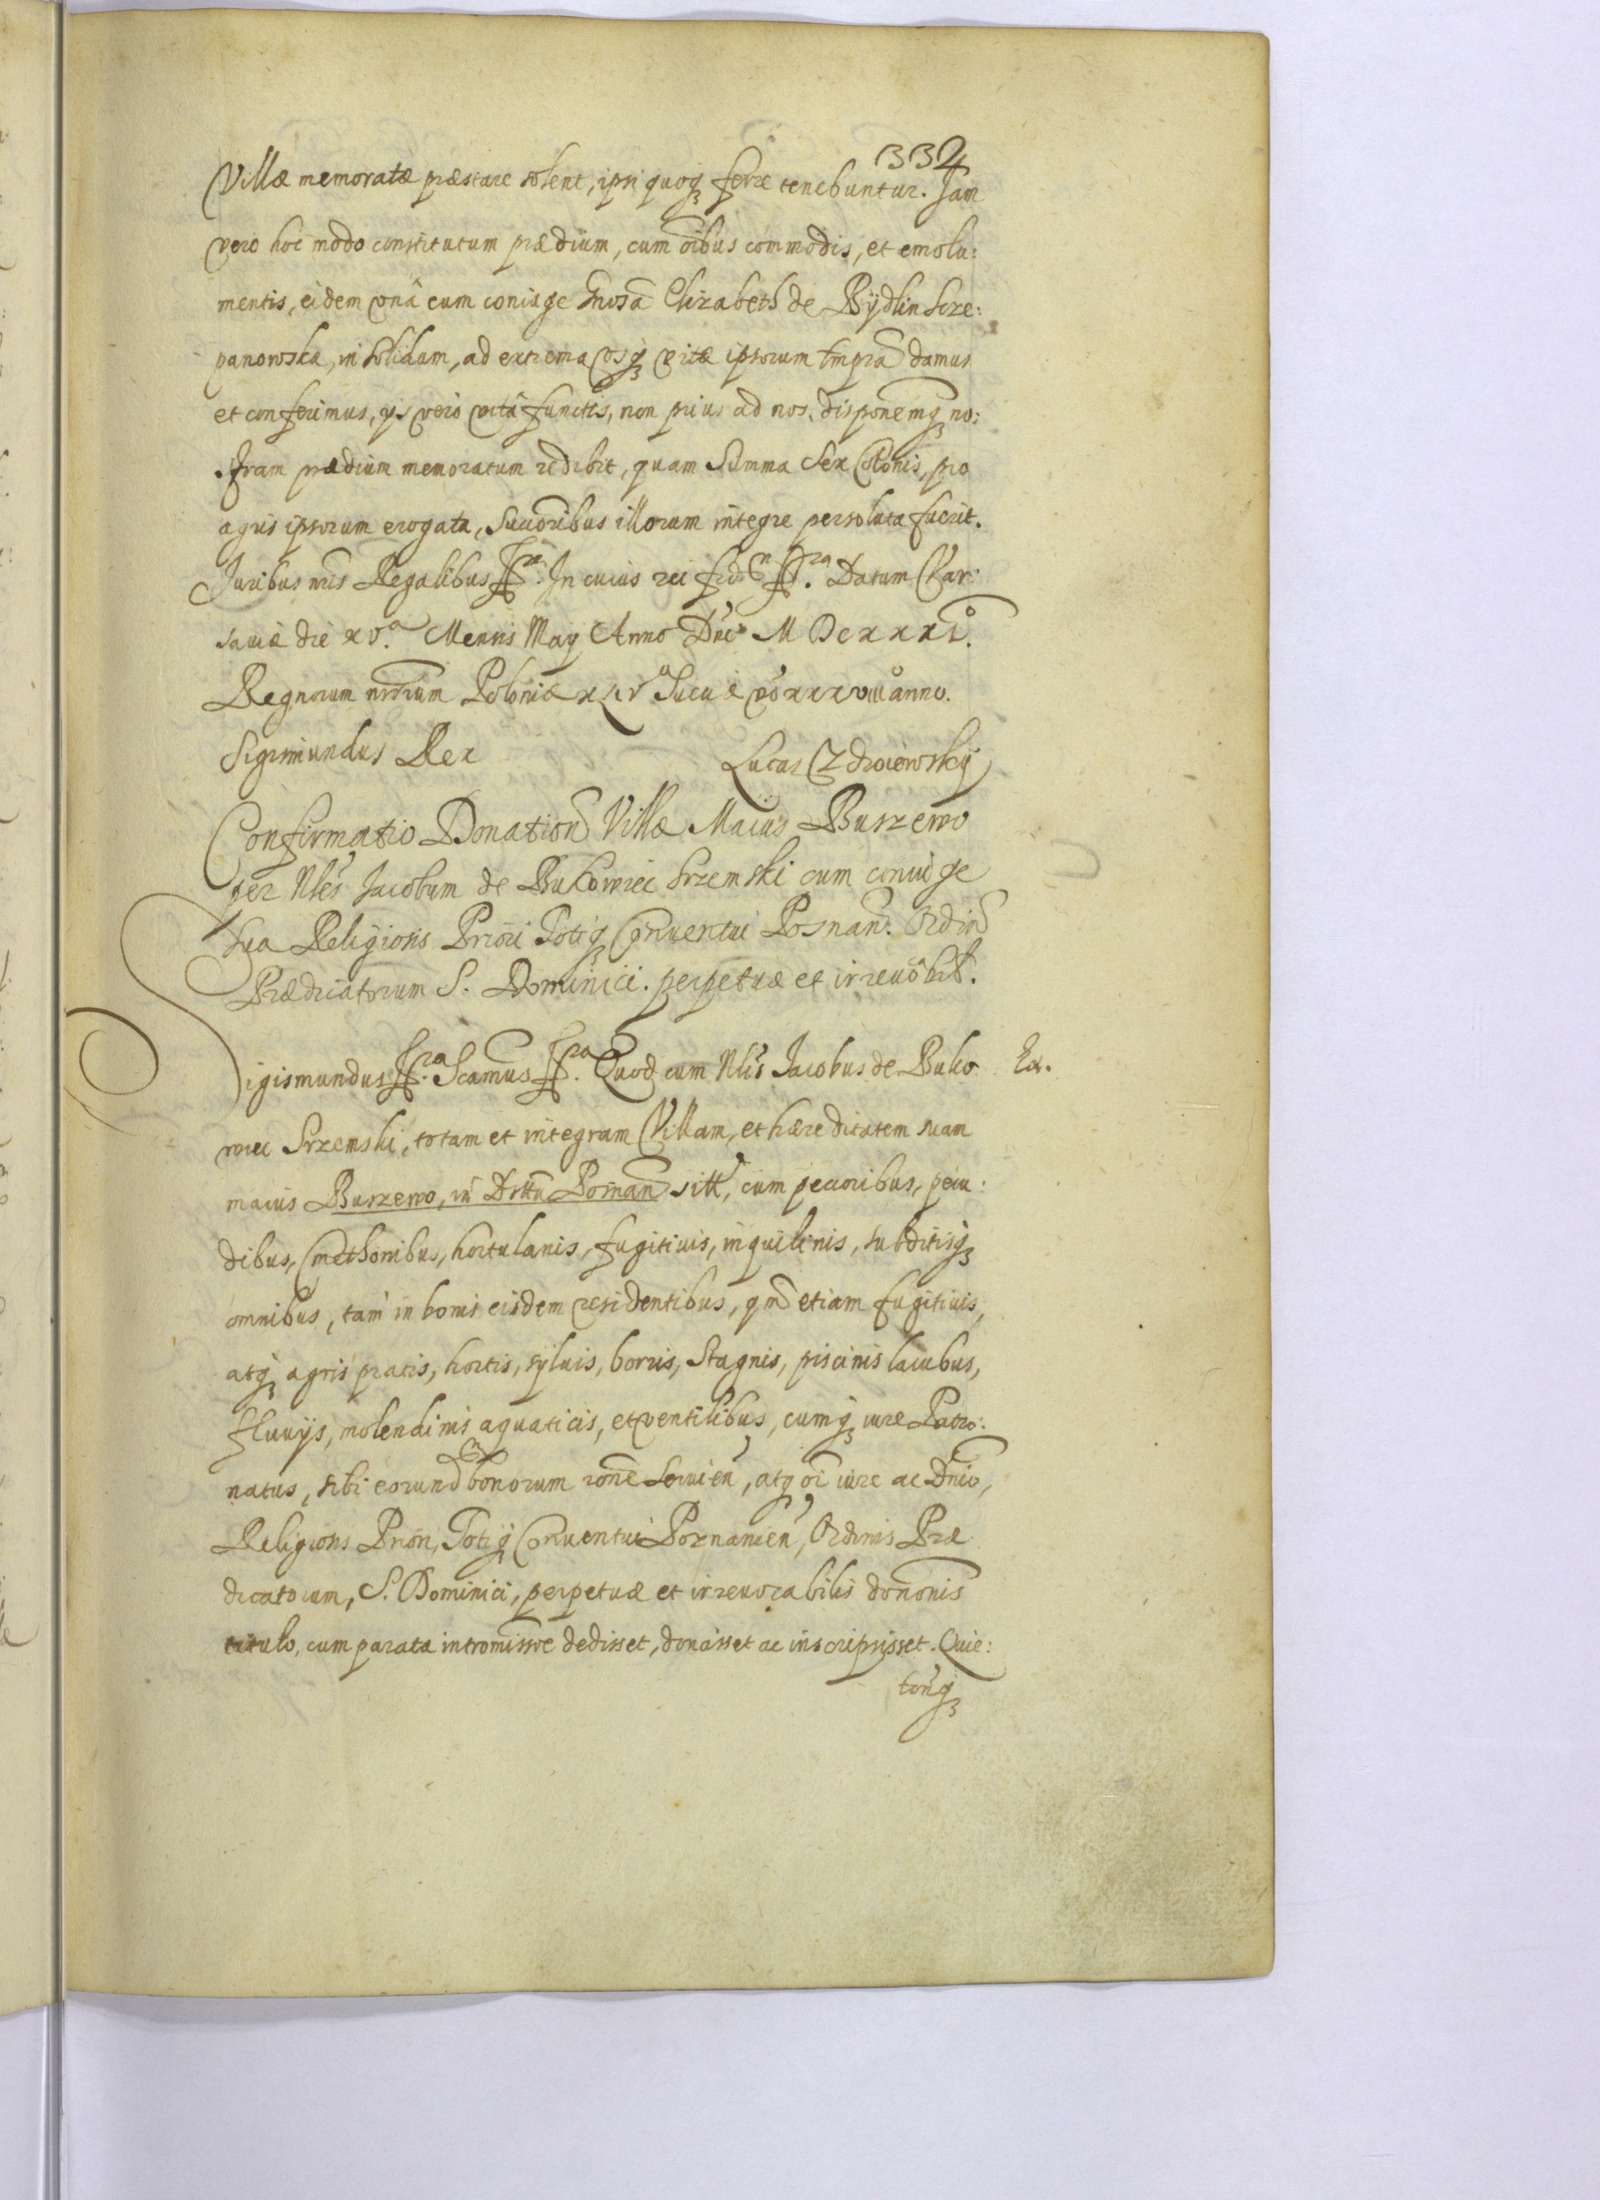 332
Villæ memoratæ præstare solent, ipsi quoqꝫ ferre tenebuntur. Jam
vero hoc modo constitutum prædium, cum oĩbus commodis, et emolu:
mentis, eidem vnâ cum coniuge Gnosã Elizabeth de Rydlin Scze:
panowska, in solidum, ad extrema vsqꝫ vitæ ipsorum tmpra damus
et conferimus, ijs vero vitâ functis, non prius ad nos, dispõnemqꝫ no:
stram prædium memoratum redibit, quam Summa Sex Colonis, pro
agris ipsorum erogata, Succõribus illorum integre persoluta fuerit.
Juribus nris Regalibus In cuius rei fidẽ Datum Var:
sauiæ die xv.ª Mensis Maÿ Anno Dni M D c x x x i.º
Regnorum nrorum Poloniæ Sueciæ vº xxxviii anno.
Sigismundus Rex
Lucas Zdroiewskÿ
Confirmatio Donation Villæ Maius Buszewo
per Nles Jacobum de Bukowiec Srzemski cum coniuge
sua Religionis Priori Totiqꝫ Conuentui Posnan. Ordin
Prædicatorum S. Dominici. perpetuæ et irreuõbil.
Sigismundus Scamus Quod cum Nlis Jacobus de Buko Ex.
wiec Srzemski, totam et integram Villam, et hæreditatem suam
maius Buszewo, in Distr Posnan sitt, cum pecoribus, pecu:
dibus, Cmethonibus, hortulanis, fugitiuis, inquilinis, subditisqꝫ
omnibus, tam in bonis eisdem residentibus, qm etiam fugitiuis,
atqꝫ agris pratis, hortis, syluis, borris, Stagnis, piscinis lacubus,
fluuijs, molendinis aquaticis, et ventilibus, cumqꝫ iure Patro:
natus, sibi eorundẽ bonorum rone Seruien, atqꝫ oĩ iure ac Dnio,
Religionis Priori, Totiqꝫ Conuentui Poznanien, Ordinis Præ
dicatorum, S. Dominici, perpetuæ et irreuocabilis donõnis
titulo, cum parata intromissoe dedisset, donasset ac inscripsisset. Quie:
tonqꝫ